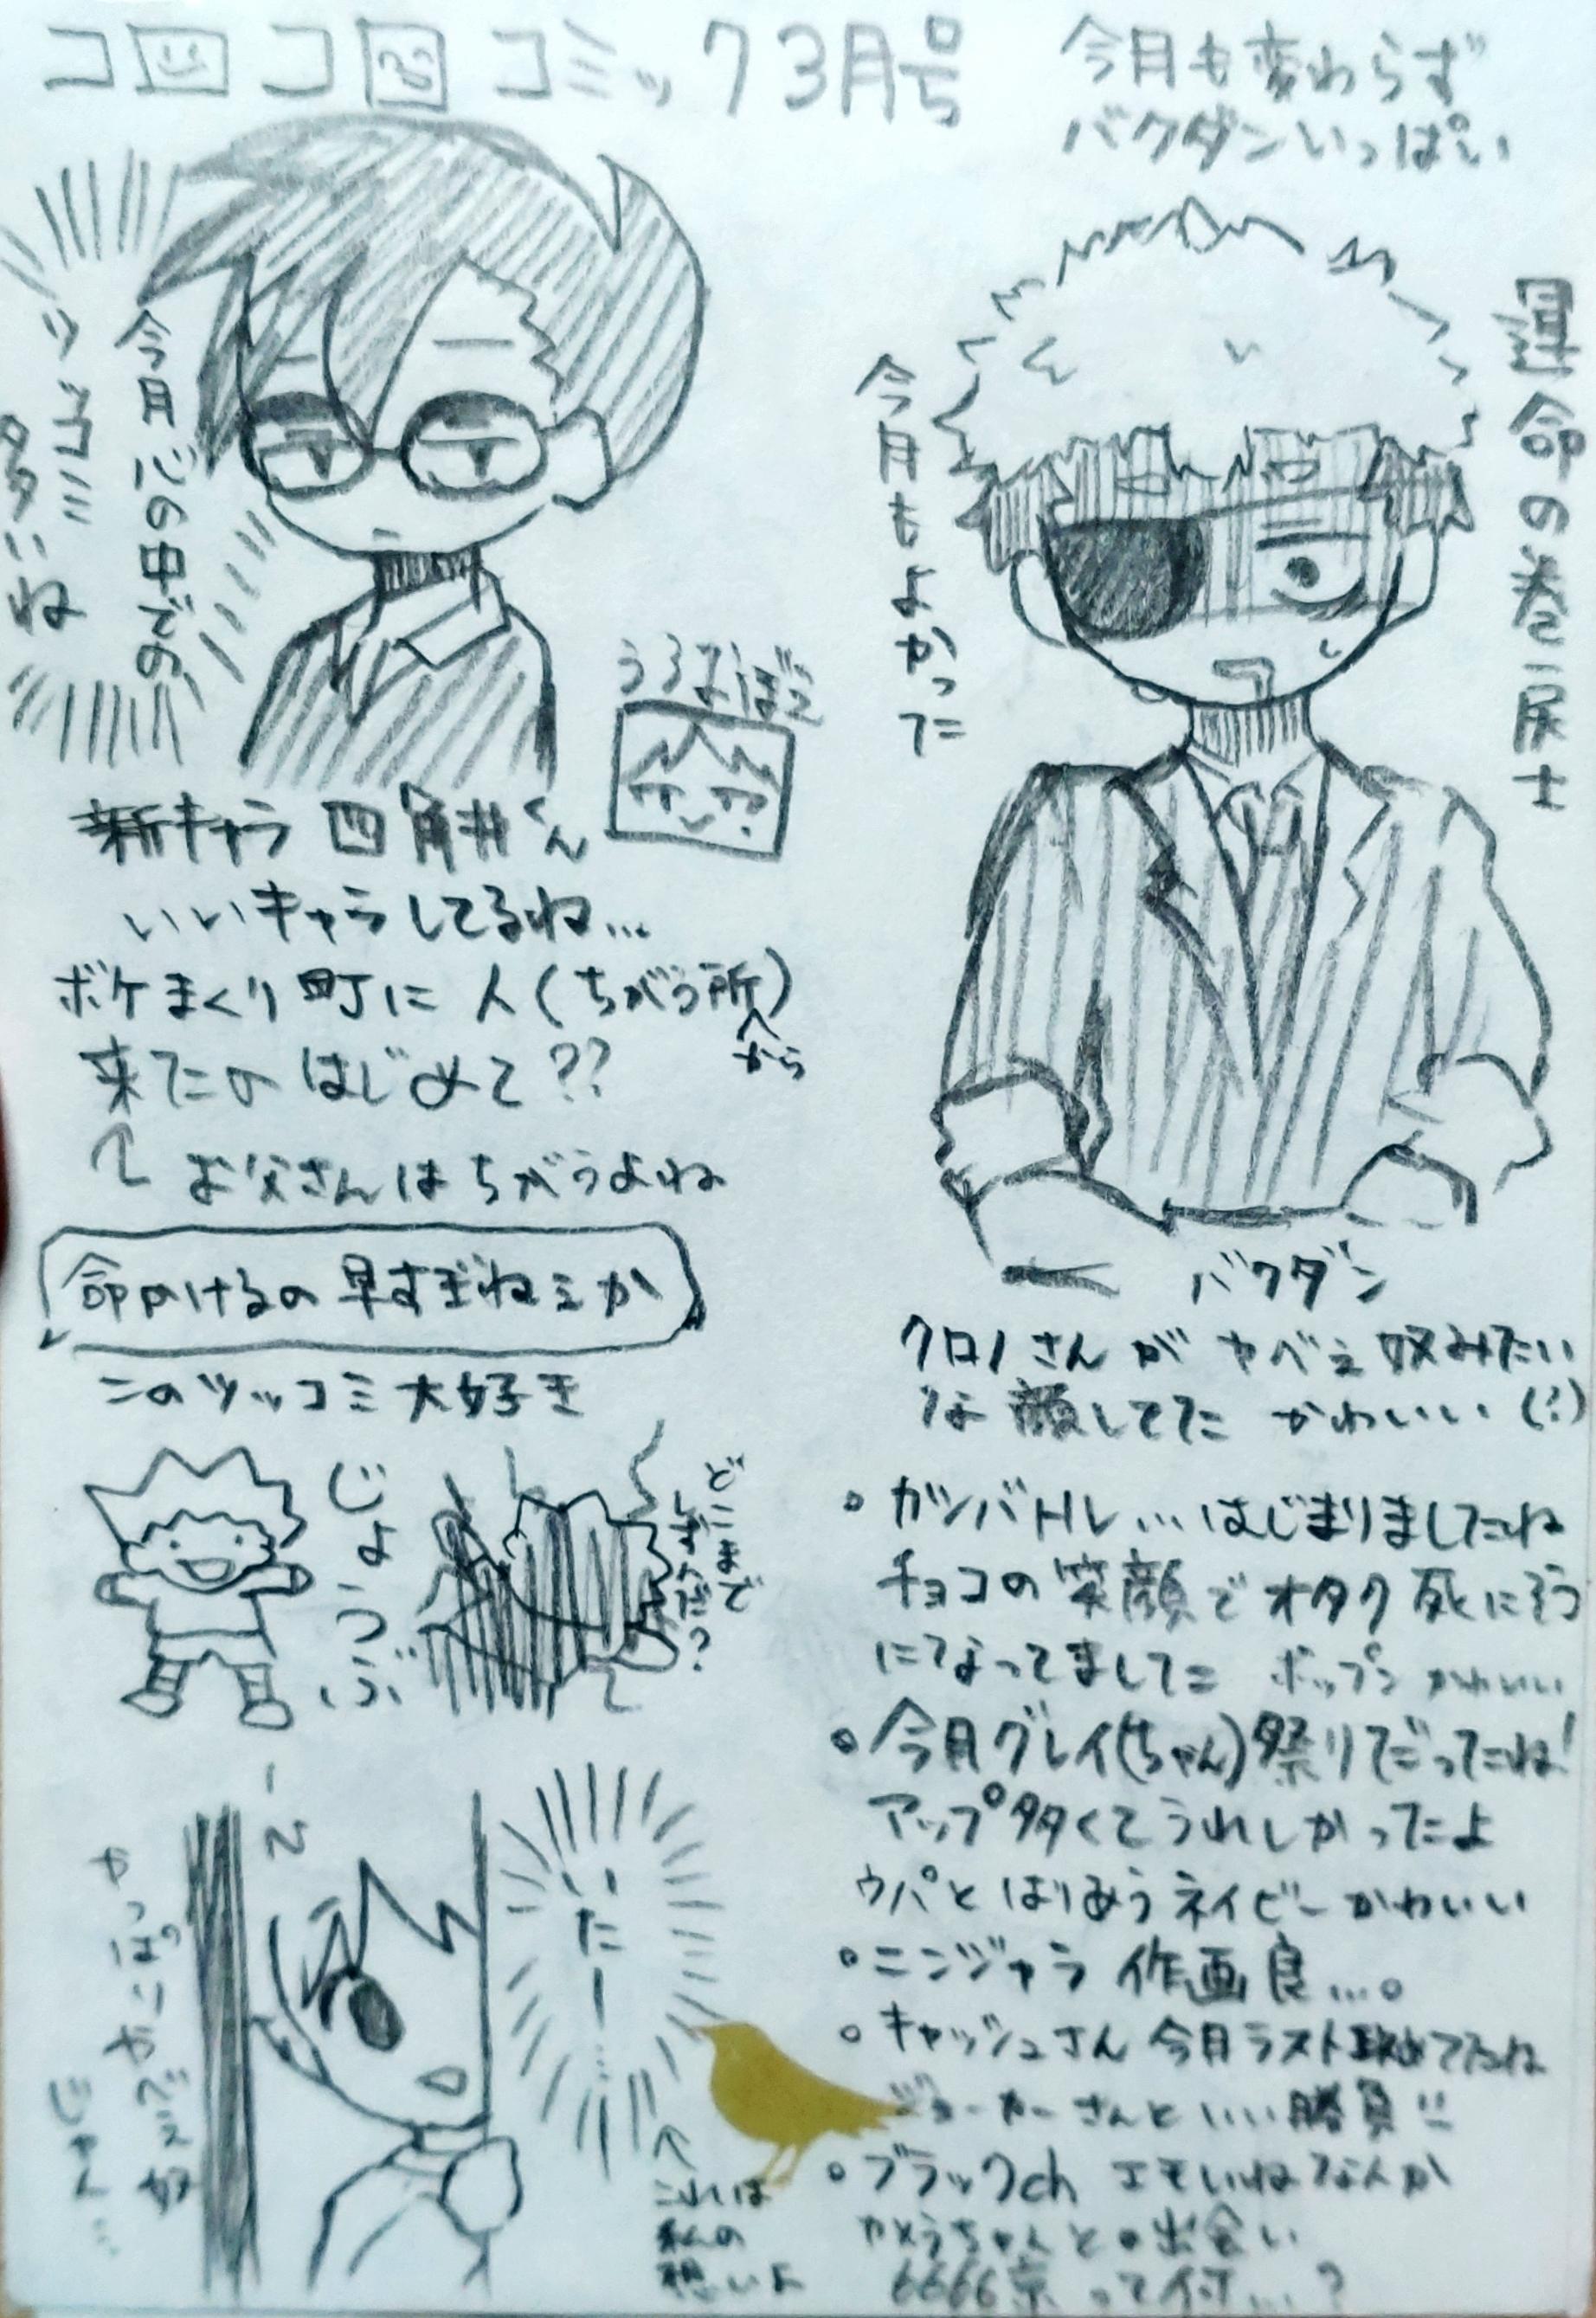 コロコロコミック3月号
今月も変わらず
バクダンいっぱい
運命の巻戻士
今月もよかった
今月心の中での
ツッコミ
タタいね
うろおぼえ
新キャラ 四角井くん
いいキャラしてるね…
ボケまくり町に人(ちがう所)
から
来たのはじめて??
お父さんはちがうよね
命かけるの早すぎねぇか
このツッコミ大好き
じょうぶ
どこまで
いたー…
やっぱっ
じゃん…
これは
私の
想いよ
バクダン
クロノさんがヤベぇ奴みたい
な顔してた かわいい(?)
・ガンバトル…はじまりましたね
チョコの笑顔でオタク死にそう
になってました ポップン かわいい
・今月グレイ(ちゃん)祭りだったね!
アップ多くてうれしかったよ
ウパとはりあうネイビーかわいい
・ニンジャラ 作画良…。
・キャッシュさん 今月ラスト
ジョーカーさんといい勝負!!
・ブラックch エモいねなんか
カメラちゃんとの出会い
6666京って何…?